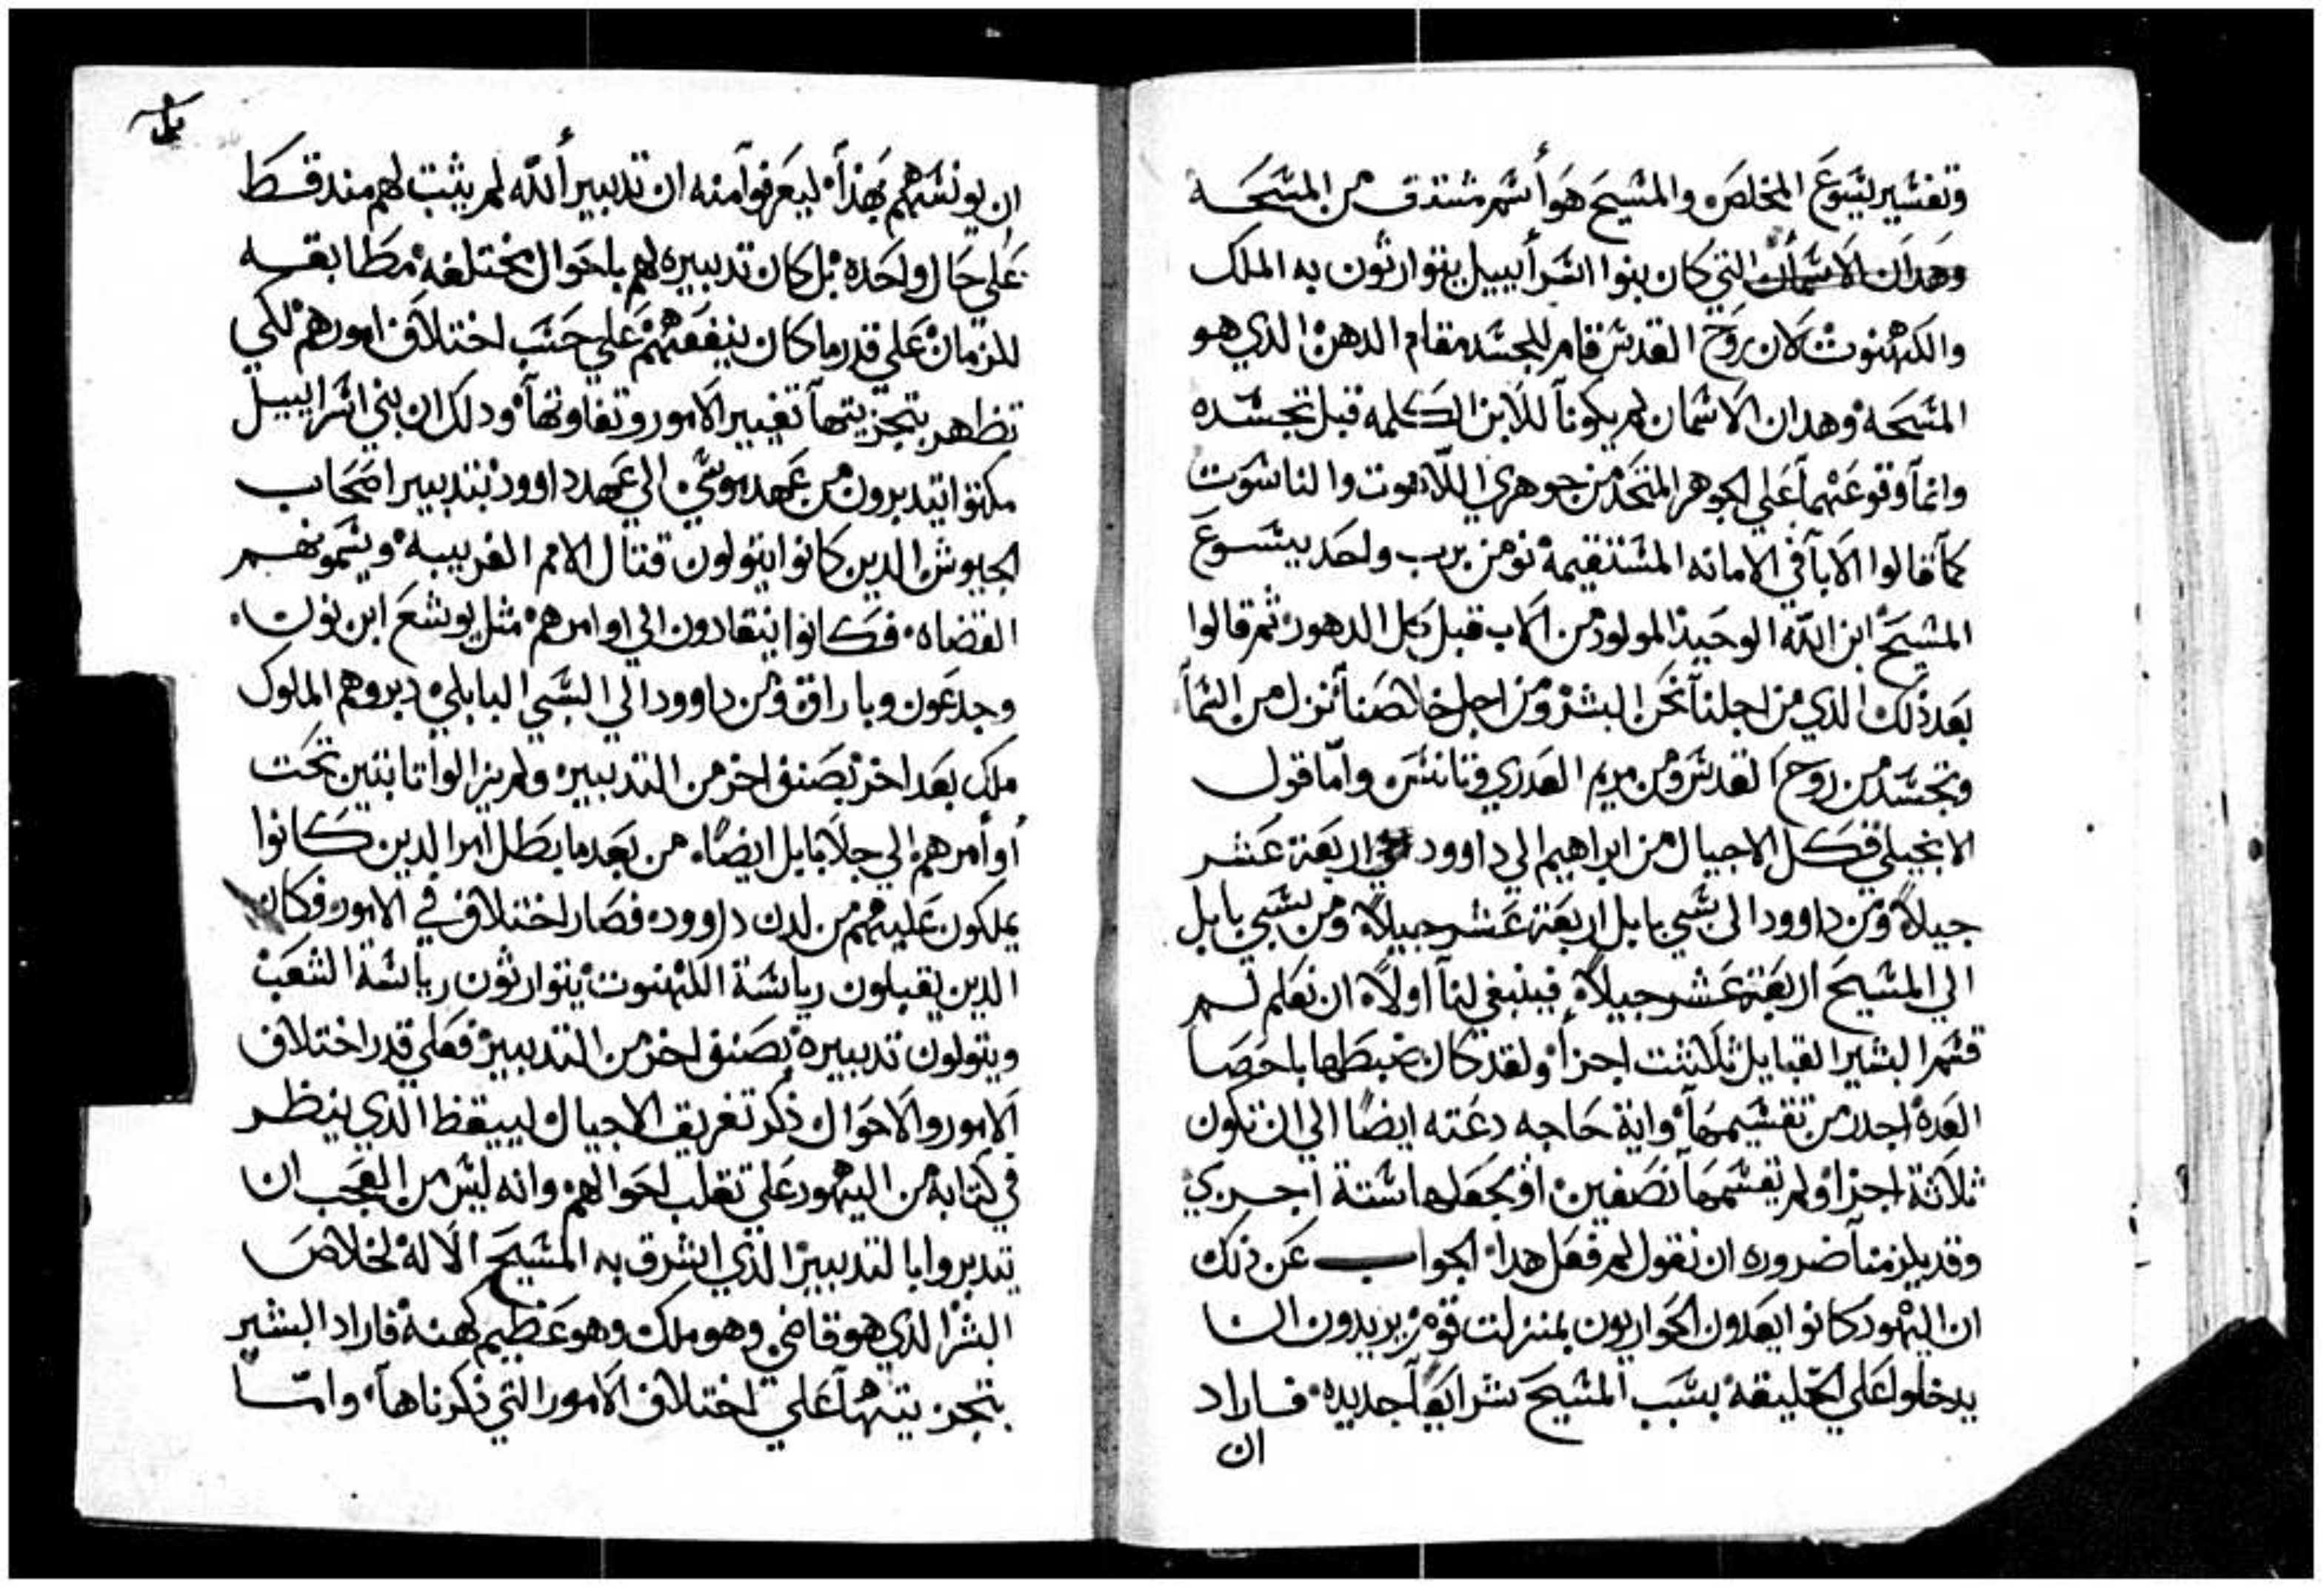 وتفسير يسوع المخلص والمسيح هو أسم مشتق من المسحه
وهدان الاسمان التي كان بنوا اسرأييل يتوارثون به الملك
والكهنوت لان روح القدس قام للجسد مقام الدهن الدي هو
المسحه وهدان الاسمان لم يكونا للابن الكلمه قبل تجسده
وانما وقوعهما علي الجوهر المتحد من جوهري اللاهوت والناسوت
كما قالوا الابا في الامانه المستقيمه نومن برب واحد يسوع
المسيح ابن الله الوحيد المولود من الاب قبل كل الدهور ثم قالوا
بعد ذلك الدي من اجلنا نحن البشر ومن اجل خلاصنا نزل من السما
وتجسد من روح القدس ومن مريم العدري وتانس واما قول
الانجيلي فكل الاجيال من ابراهيم الي داوود اربعة عشر
جيلاً ومن داوود الى سبي بابل اربعة عشر جيلاً ومن سبي بابل
الي المسيح اربعة عشر جيلاً فينبغي لنا اولاً ان نعلم لم
قسم البشير القبايل ثلاثت اجزا ولقد كان ضبطها باحصا
العده اجدر من تقسيمها واية حاجه دعته ايضاً الي ان تكون
ثلاثة اجزا ولم يقسمها نصفين او يجعلها ستة اجزي
وقد يلزمنا ضروره ان نقول لم فعل هدا الجواب عن ذلك
ان اليهود كانوا يعدون الحواريون بمنزلت قوم يريدون ان
يدخلوا علي الخليقه بسبب المسيح شرايعاً جديده فاراد
ان
ان يونسهم بهذا ليعرفوا منه ان تدبير أدلله لم يثبت لهم مند قط
علي حال واحده بل كان تدبيره لهم باحوال مختلفه مطابقه
للزمان علي قدر ما كان ينفعهم علي حسب اختلاف امورهم لكي
تظهر بتجزيتها تغيير الامور وتفاوتها ودلك ان بني اسراييل
مكتوا يتدبرون من عهد موسي الي عهد داوود بتدبير اصحاب
الجيوش الدين كانوا يتولون قتال الامم الغريبه ويسمونهم
القضاه فكانوا ينقادون الي اوامرهم مثل يوشع ابن نون
وجدعون وباراق ومن داوود الي السبي البابلي دبروهم الملوك
ملك بعد اخر بصنف اخر من التدبير ولم يزالوا تابتين تحت
أوأمرهم الي جلا بابل ايضاً من بعد ما بطل امر الدين كانوا
يملكون عليهم من لدن داوود فصار اختلاف في الامور فكان
الدين يقبلون رياسة الكهنوت يتوارثون رياسة الشعب
ويتولون تدبيره بصنف اخر من التدبير فعلي قدر اختلاف
الامور والاحوال ذكر تفريق الاجيال ليبقظ الذي ينظر
في كتابه من اليهود علي تقلب احوالهم وانه ليس من العجب ان
يتدبروا بالتدبير الذي اشرق به المسيح الالة لخلاص
البشر الدي هو قاضي وهو ملك وهو عظيم كهنة فاراد البشير
بتجزيتها علي اختلاف الامور التي ذكرناها واما